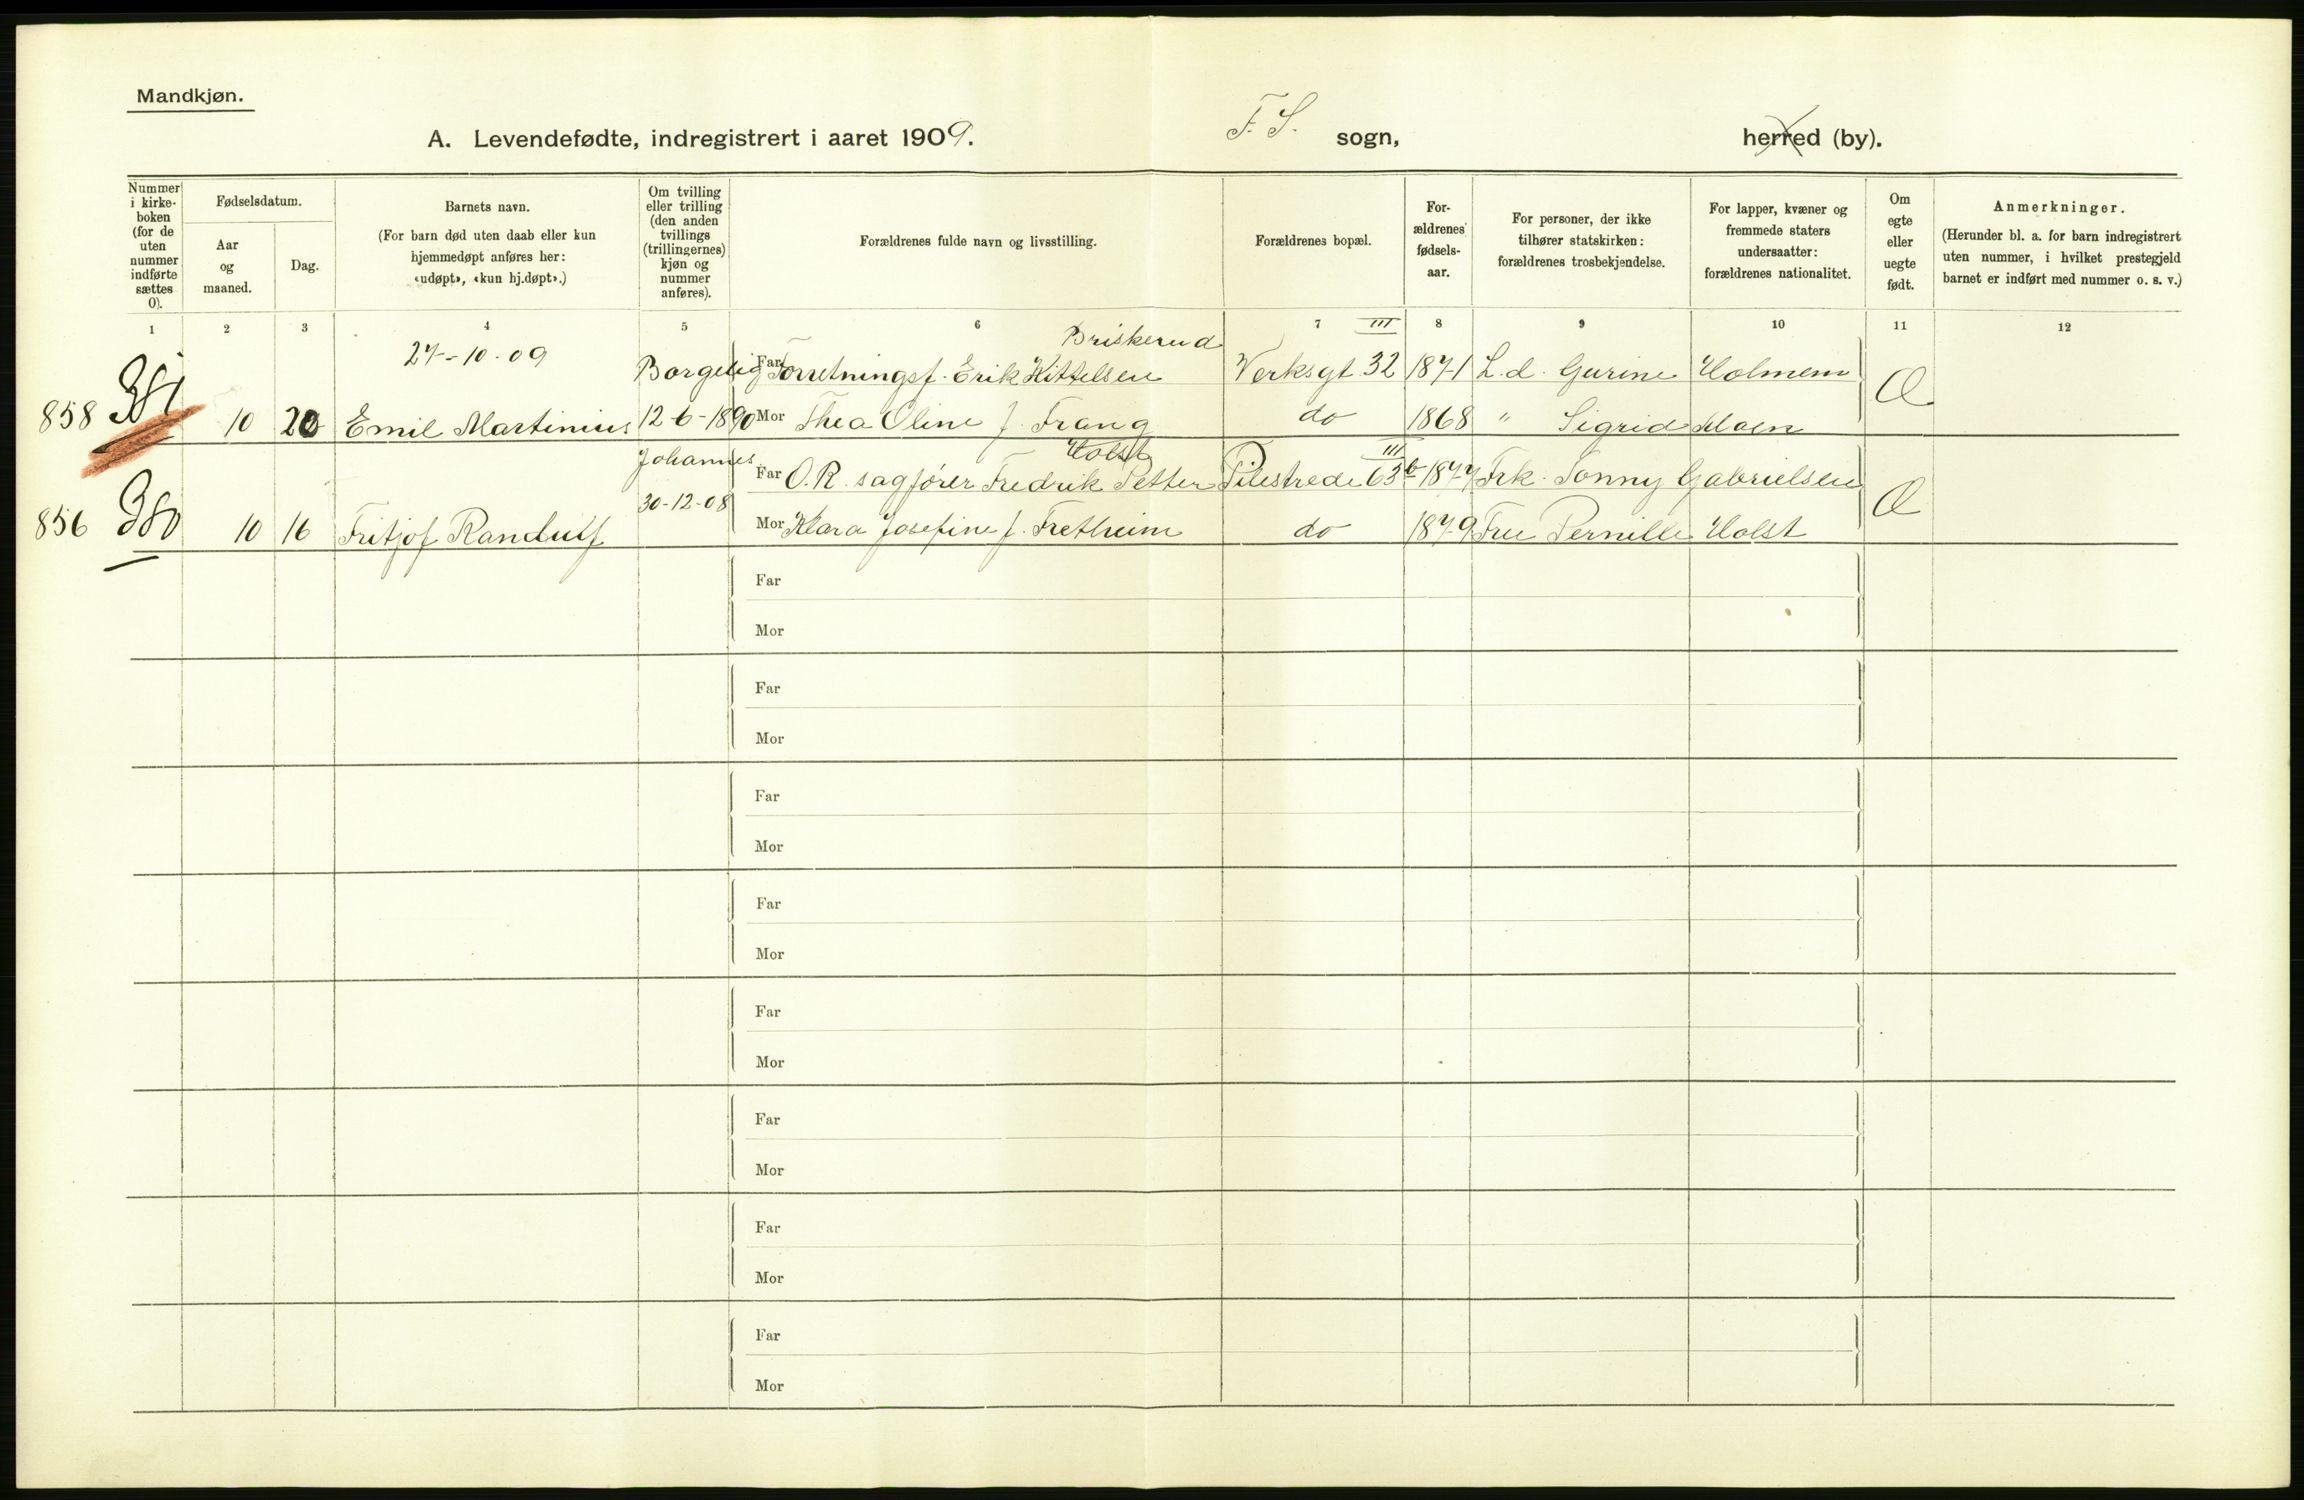 Mandkjøn.
A. Levendefødte, indregistrert i aaret 1909.
F. S. sogn,
herred (by).
Nummer i kirke-boken (for de uten nummer indførte sættes 0).
Fødselsdatum.
Aar og maaned.
Dag.
Barnets navn.
(For barn død uten daab eller kun hjemmedøpt anføres her: «udøpt», «kun hj.døpt».)
Om tvilling eller trilling (den anden tvillings (trillingernes) kjøn og nummer anføres).
Forældrenes fulde navn og livsstilling.
Forældrenes bopæl.
For-ældrenes fødsels-aar.
For personer, der ikke tilhører statskirken: forældrenes trosbekjendelse.
For lapper, kvæner og fremmede staters undersaatter: forældrenes nationalitet.
Om egte eller uegte født.
Anmerkninger.
(Herunder bl. a. for barn indregistrert uten nummer, i hvilket prestegjeld barnet er indført med nummer o. s. v.)
1 2 3 4 5 6 7 8 9 10 11 12
27-10-09 Briskerud III
Borgelig Far Forretningsf. Erik Kittelsen Verksgt 32 1871 L. d. Gurine Holmem
858 381 10 20 Emil Martinius 12-6-1890 Mor Thea Oline f. Frang do 1868 " Sigrid Moen
Æ
Johannes Holst III
Far O. R. sagfører Fredrik Petter Pilestrede 63b 1877 Frk. Tonny Gabrielsen
30-12-08
856 380 10 16 Fritjof Randulf Mor Klara Josefine f. Fretheim do 1879 Frue Pernille Holst
Æ
Far
Mor
Far
Mor
Far
Mor
Far
Mor
Far
Mor
Far
Mor
Far
Mor
Far
Mor